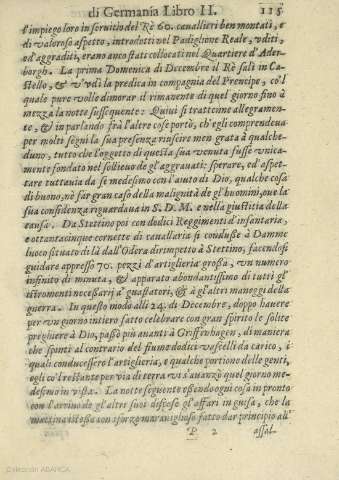 di Germania Libro II. 115
l'impiego loro in seruitio del Rè 60. cauallieri ben montati, e
di valoroso aspetto, introdotti nel Padiglione Reale, vditi,
ed'aggraditi, erano anco stati collocati nel Quartiere d'Ader-
borgh. La prima Domenica di Decembre il Rè salì in Ca-
stello, & v'vdì la predica in compagnia del Prencipe, co'l
quale pure volle dimorar il rimanente di quel giorno fino à
mezza la notte susseguente: Quiui si trattenne allegramen-
te, & in parlando frà l'altre cose portò, ch'egli comprendeua
per molti segni la sua presenza riuscire men grata à qualche-
duno, tutto che l'oggetto di questa sua venuta fusse vnica-
mente fondato nel sollieuo de gl'aggrauati: sperare, ed'aspet-
tare tuttauia da se medesimo con l'aiuto di Dio, qualche cosa
di buono, nè far gran caso della malignità de gl'huomini, que la
sua confidenza riguardaua in S. D. M. e nella giustitia della
causa. Da Stettino poi con dodici Reggimenti d'infantaria,
e ottantacinque cornette di cauallaria si condusse à Damme
luogo situato di là dall'Odera dirimpetto à Stettino, facendosi
guidare appresso 70. pezzi d'artiglieria grossa, vn numero
infinito di minuta, & apparato abondantissimo di tutti gl'
istromenti necessarij à' guastatori, & à gl'altri maneggi della
guerra. In questo modo alli 24. di Decembre, doppo hauere
per vn giorno intiero fatto celebrare con gran spirito le solite
preghiere à Dio, passò più auanti à Griffenhagen, di maniera
che spinti al contrario del fiume dodici vaselli da carico, i
quali conducessero l'artiglieria, e qualche portione delle genti,
egli co'l restante per via di terra vi s'auanzò quel giorno me-
desimo in vista. La notte seguente essendo ogni cosa in pronto
con l'arriuo de gl'altri suoi dispose gl'affari in guisa, che la
mattina istessa con sforzo marauiglioso fatto dar principio all'
P 2 assal-
© dirección ABANCA